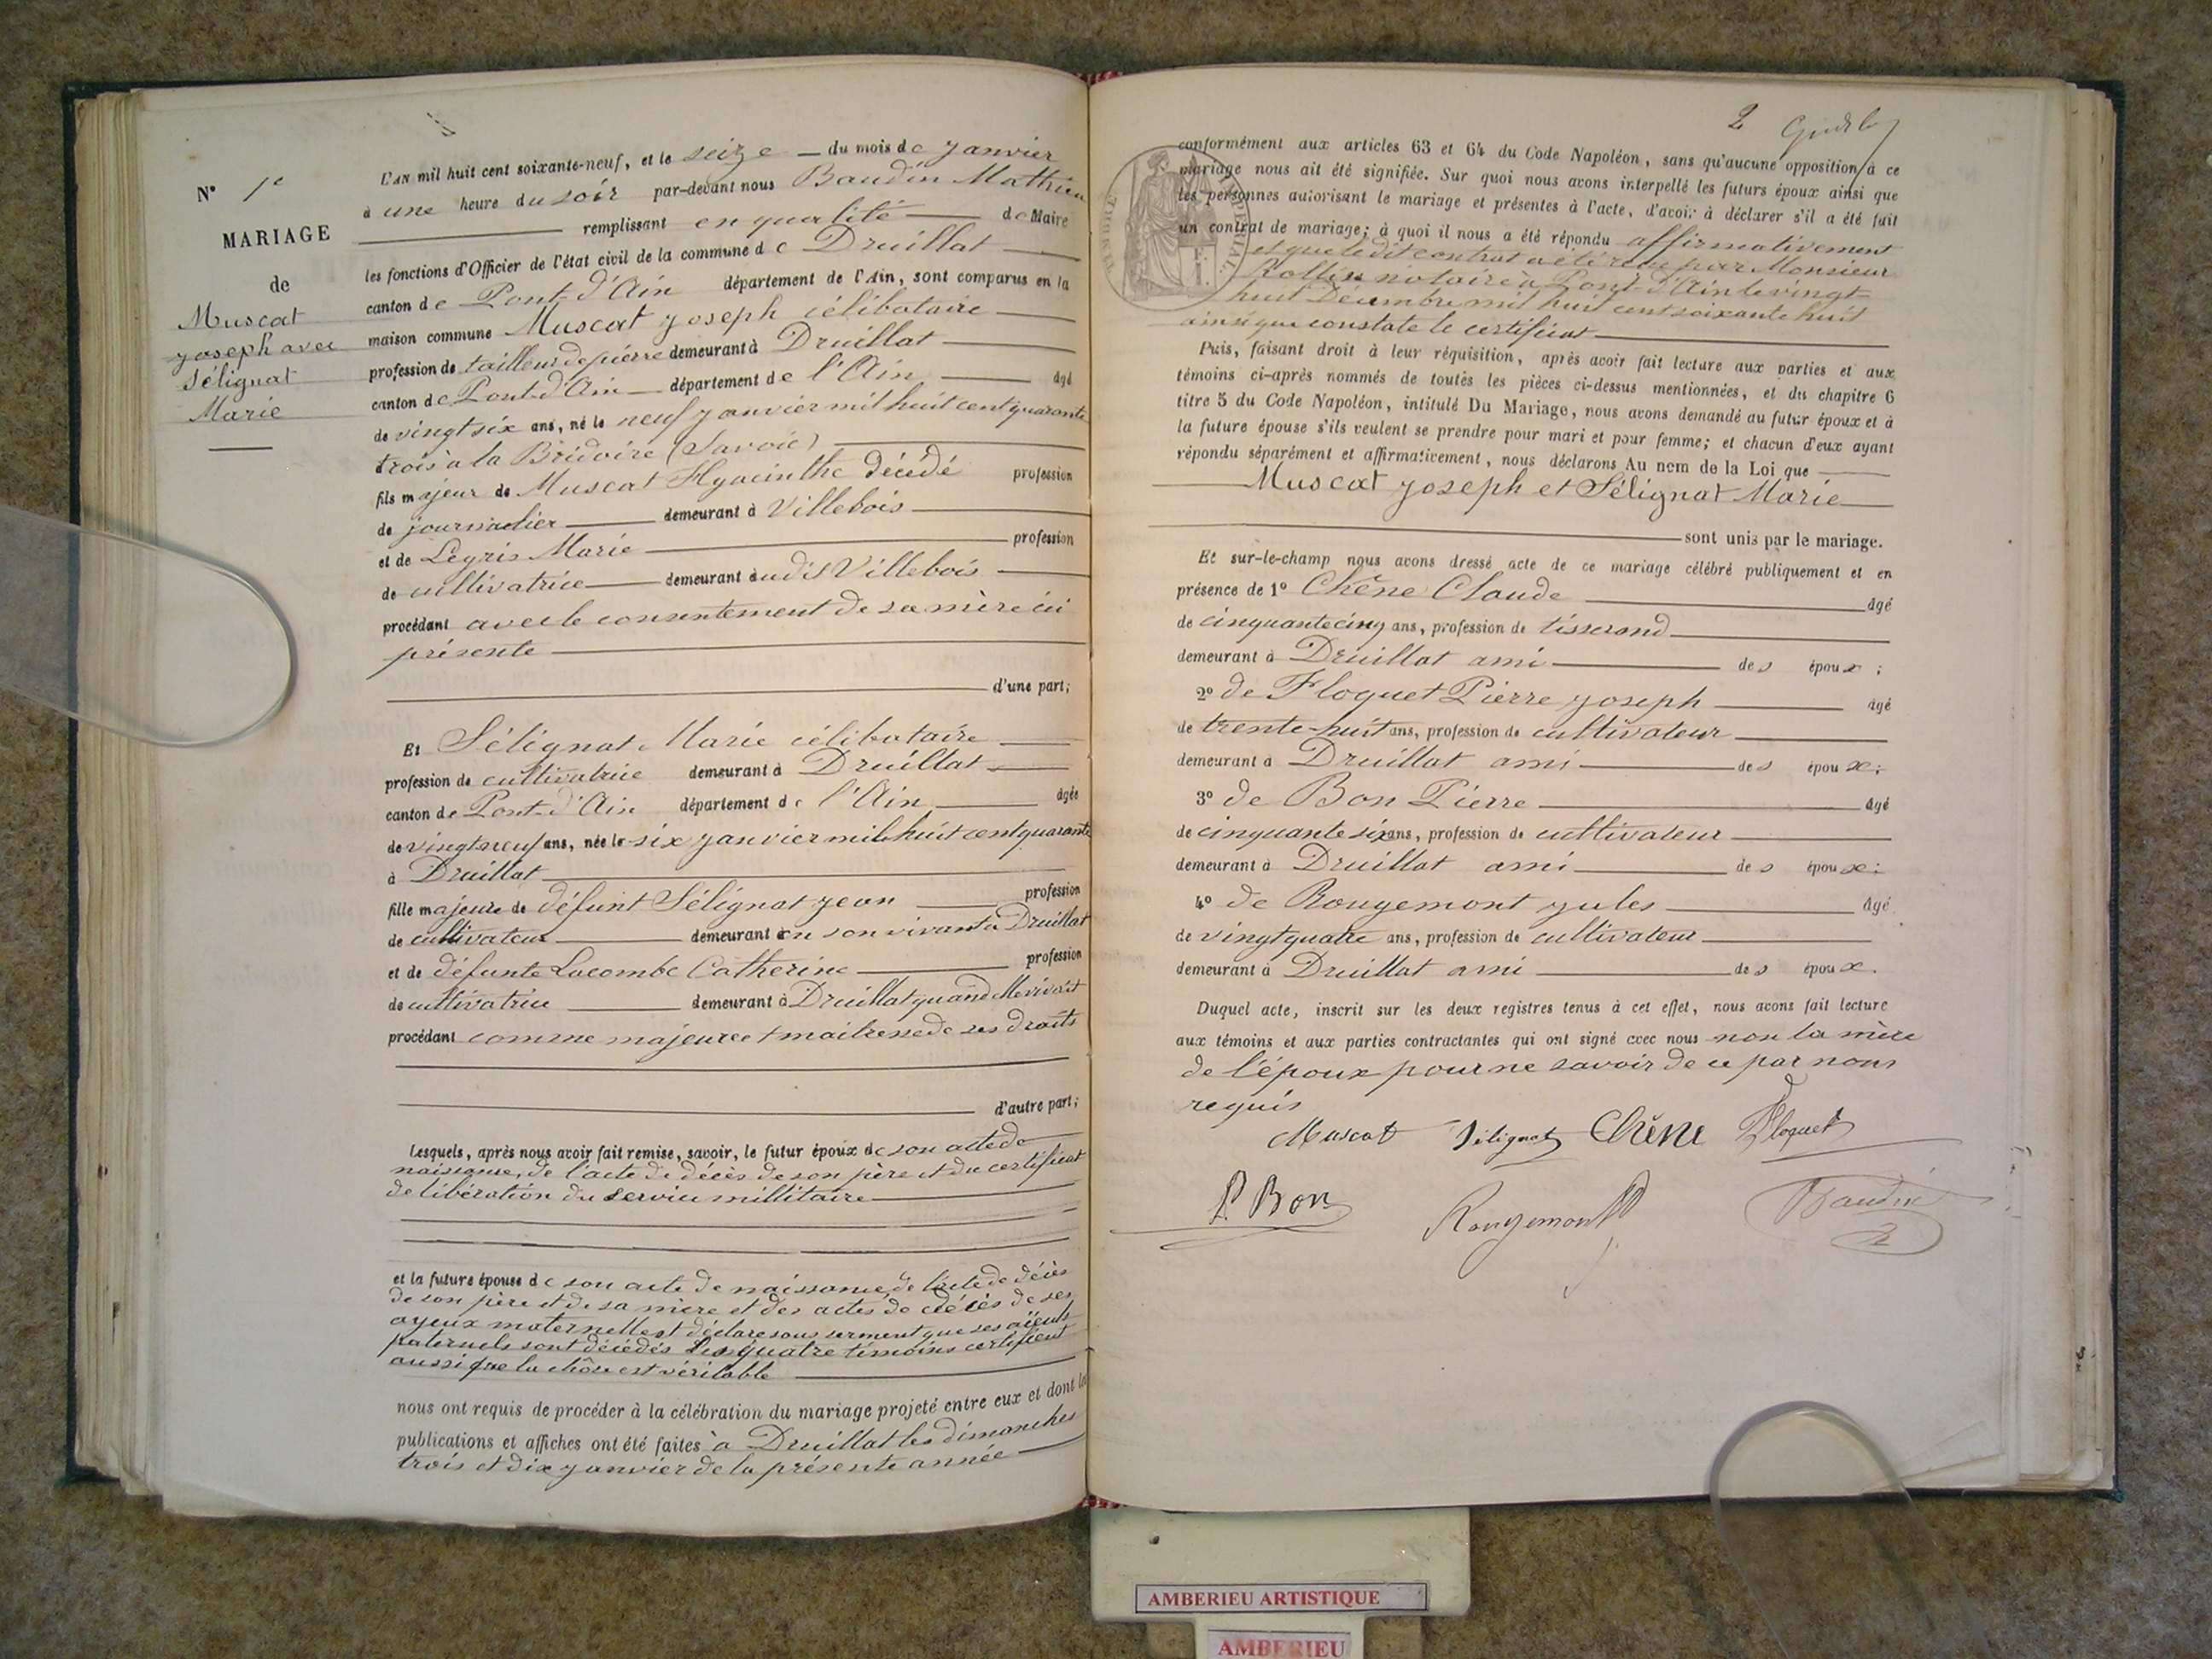 N° 1e
MARIAGE
de
Muscat
Joseph avec
Sélignat
Marie
L'AN mil huit cent soixante-neuf, et le seize du mois de Janvier
à une heure du soir par-devant nous Baudin Mathieu
remplissant en qualité de Maire
les fonctions d'Officier de l'état civil de la commune de Druillat
canton de Pont-d'Ain département de l'Ain, sont comparus en la
maison commune Muscat Joseph célibataire
profession de tailleur de pierre demeurant à Druillat
canton de Pont-d'Ain département de l'Ain âgé
de vingt six ans, né le neuf Janvier mil huit cent quarante
trois à la Bridoire (Savoie)
fils majeur de Muscat Hyacinthe décédé profession
de journalier demeurant à Villebois
et de Legris Marie profession
de cultivatrice demeurant audit Villebois
procédant avec le consentement de sa mère ici
présente
d'une part;
Et Sélignat Marie célibataire
profession de cultivatrice demeurant à Druillat
canton de Pont-d'Ain département de l'Ain âgée
de vingt neuf ans, née le six Janvier mil huit cent quarante
à Druillat
fille majeure de défunt Sélignat Jean profession
de cultivateur demeurant en son vivant à Druillat
et de défunte Lacombe Catherine profession
de cultivatrice demeurant à Druillat quand elle vivait
procédant comme majeure et maitresse de ses droits
d'autre part;
Lesquels, après nous avoir fait remise, savoir, le futur époux de son acte de
naissance, de l'acte de décès de son père et du certificat
de libération du service millitaire
et la future épouse de son acte de naissance, de l'acte de décès
de son père et de sa mère et des actes de décès de ses
ayeux maternelle et déclare sous serment que ses aïeuls
paternels sont décédés les quatre témoins certifient
aussi que la chose est véritable
nous ont requis de procéder à la célébration du mariage projeté entre eux et dont les
publications et affiches ont été faites à Druillat les dimanches
trois et dix Janvier de la présente année
2
conformément aux articles 63 et 64 du Code Napoléon, sans qu'aucune opposition à ce
mariage nous ait été signifiée. Sur quoi nous avons interpellé les futurs époux ainsi que
les personnes autorisant le mariage et présentes à l'acte, d'avoir à déclarer s'il a été fait
un contrat de mariage; à quoi il nous a été répondu affirmativement
et que le dit contrat a été reçu par Monsieur
Rollin notaire à Pont-d'Ain le vingt
huit Décembre mil huit cent soixante huit
ainsi que constate le certificat
TIMBRE IMPERIAL
Puis, faisant droit à leur réquisition, après avoir fait lecture aux parties et aux
témoins ci-après nommés de toutes les pièces ci-dessus mentionnées, et du chapitre 6
titre 5 du Code Napoléon, intitulé Du Mariage, nous avons demandé au futur époux et à
la future épouse s'ils veulent se prendre pour mari et pour femme; et chacun d'eux ayant
répondu séparément et affirmativement, nous déclarons Au nom de la Loi que
Muscat Joseph et Sélignat Marie
sont unis par le mariage.
Et sur-le-champ nous avons dressé acte de ce mariage célébré publiquement et en
présence de 1° Chêne Claude âgé
de cinquante cinq ans, profession de tisserand
demeurant à Druillat ami des époux;
2° de Floquet Pierre Joseph âgé
de trente-huit ans, profession de cultivateur
demeurant à Druillat ami des époux;
3° de Bon Pierre âgé
de cinquante six ans, profession de cultivateur
demeurant à Druillat ami des époux;
4° de Rougemont Jules âgé
de vingt quatre ans, profession de cultivateur
demeurant à Druillat ami des époux.
Duquel acte, inscrit sur les deux registres tenus à cet effet, nous avons fait lecture
aux témoins et aux parties contractantes qui ont signé avec nous non la mère
de l'époux pour ne savoir de ce par nous
requis
Muscat Sélignat Chêne Floquet
P. Bon Rougemont Baudin
AMBERIEU ARTISTIQUE
AMBERIEU